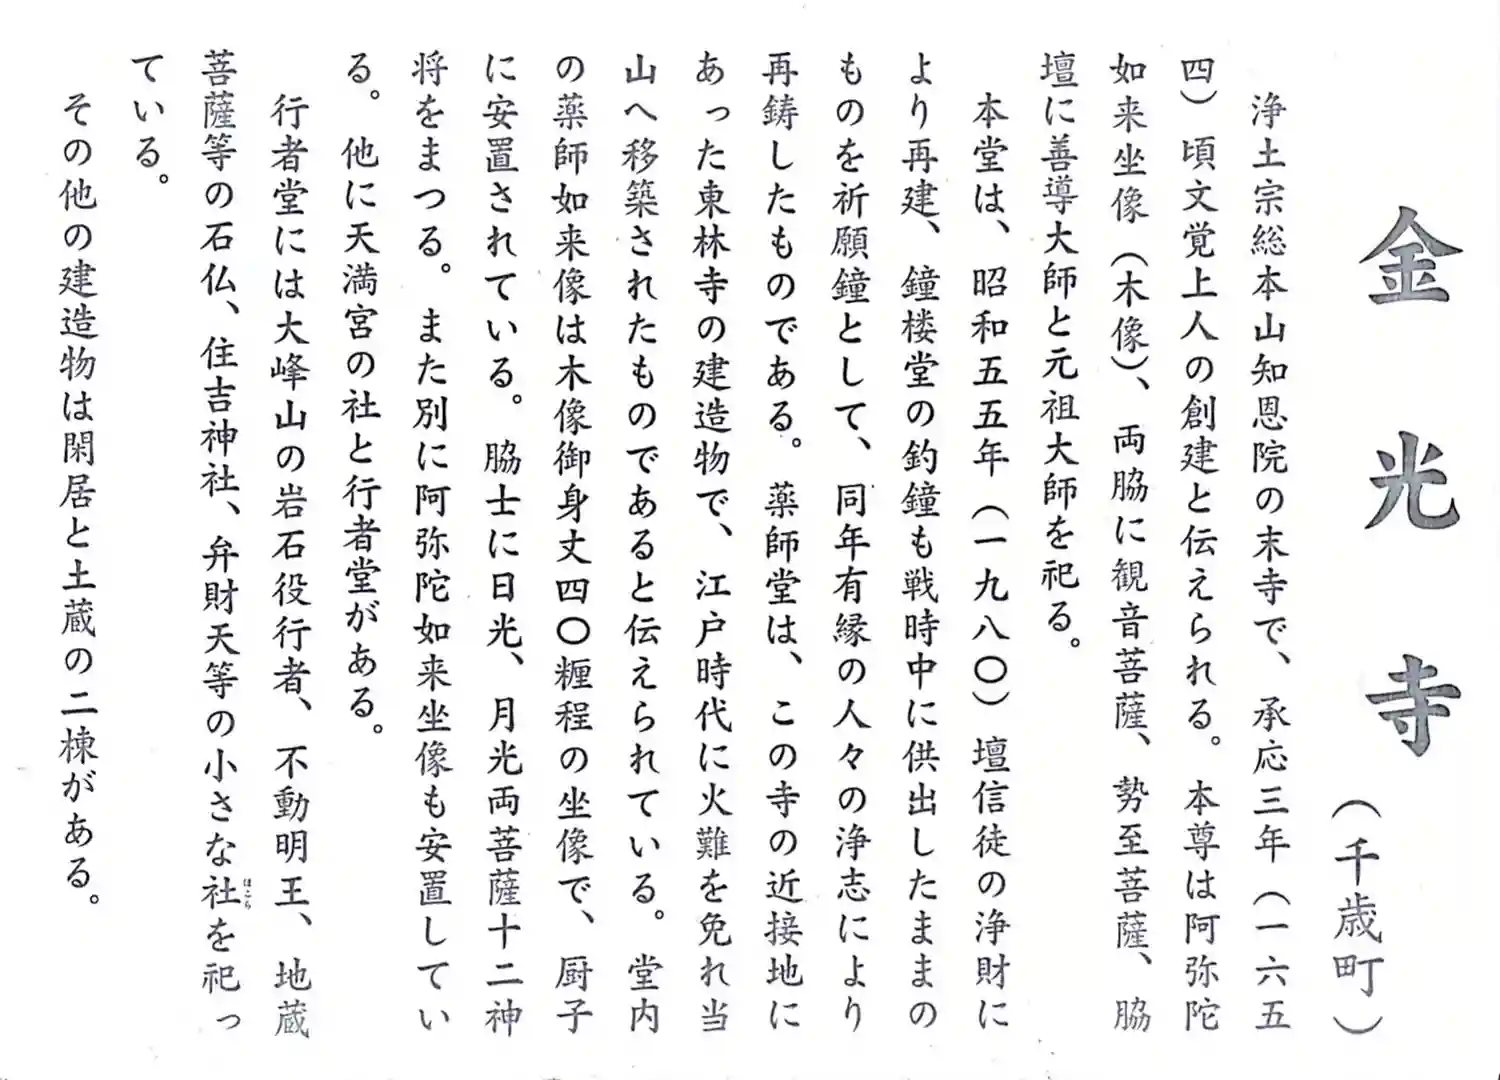 金光寺
(千歳町)
浄土宗総本山知恩院の末寺で、承応三年(一六五
四)頃文覚上人の創建と伝えられる。本尊は阿弥陀
如来坐像(木像)、両脇に観音菩薩、勢至菩薩、脇
壇に善導大師と元祖大師を祀る。
本堂は、昭和五五年(一九八〇)壇信徒の浄財に
より再建、鐘楼堂の釣鐘も戦時中に供出したままの
ものを祈願鐘として、同年有縁の人々の浄志により
再鋳したものである。薬師堂は、この寺の近接地に
あった東林寺の建造物で、江戸時代に火難を免れ当
山へ移築されたものであると伝えられている。堂内
の薬師如来像は木像御身丈四〇糎程の坐像で、厨子
に安置されている。脇士に日光、月光両菩薩十二神
将をまつる。また別に阿弥陀如来坐像も安置してい
る。他に天満宮の社と行者堂がある。
行者堂には大峰山の岩石役行者、不動明王、地蔵
菩薩等の石仏、住吉神社、弁財天等の小さな社を祀っ
ほこら
ている。
その他の建造物は閑居と土蔵の二棟がある。